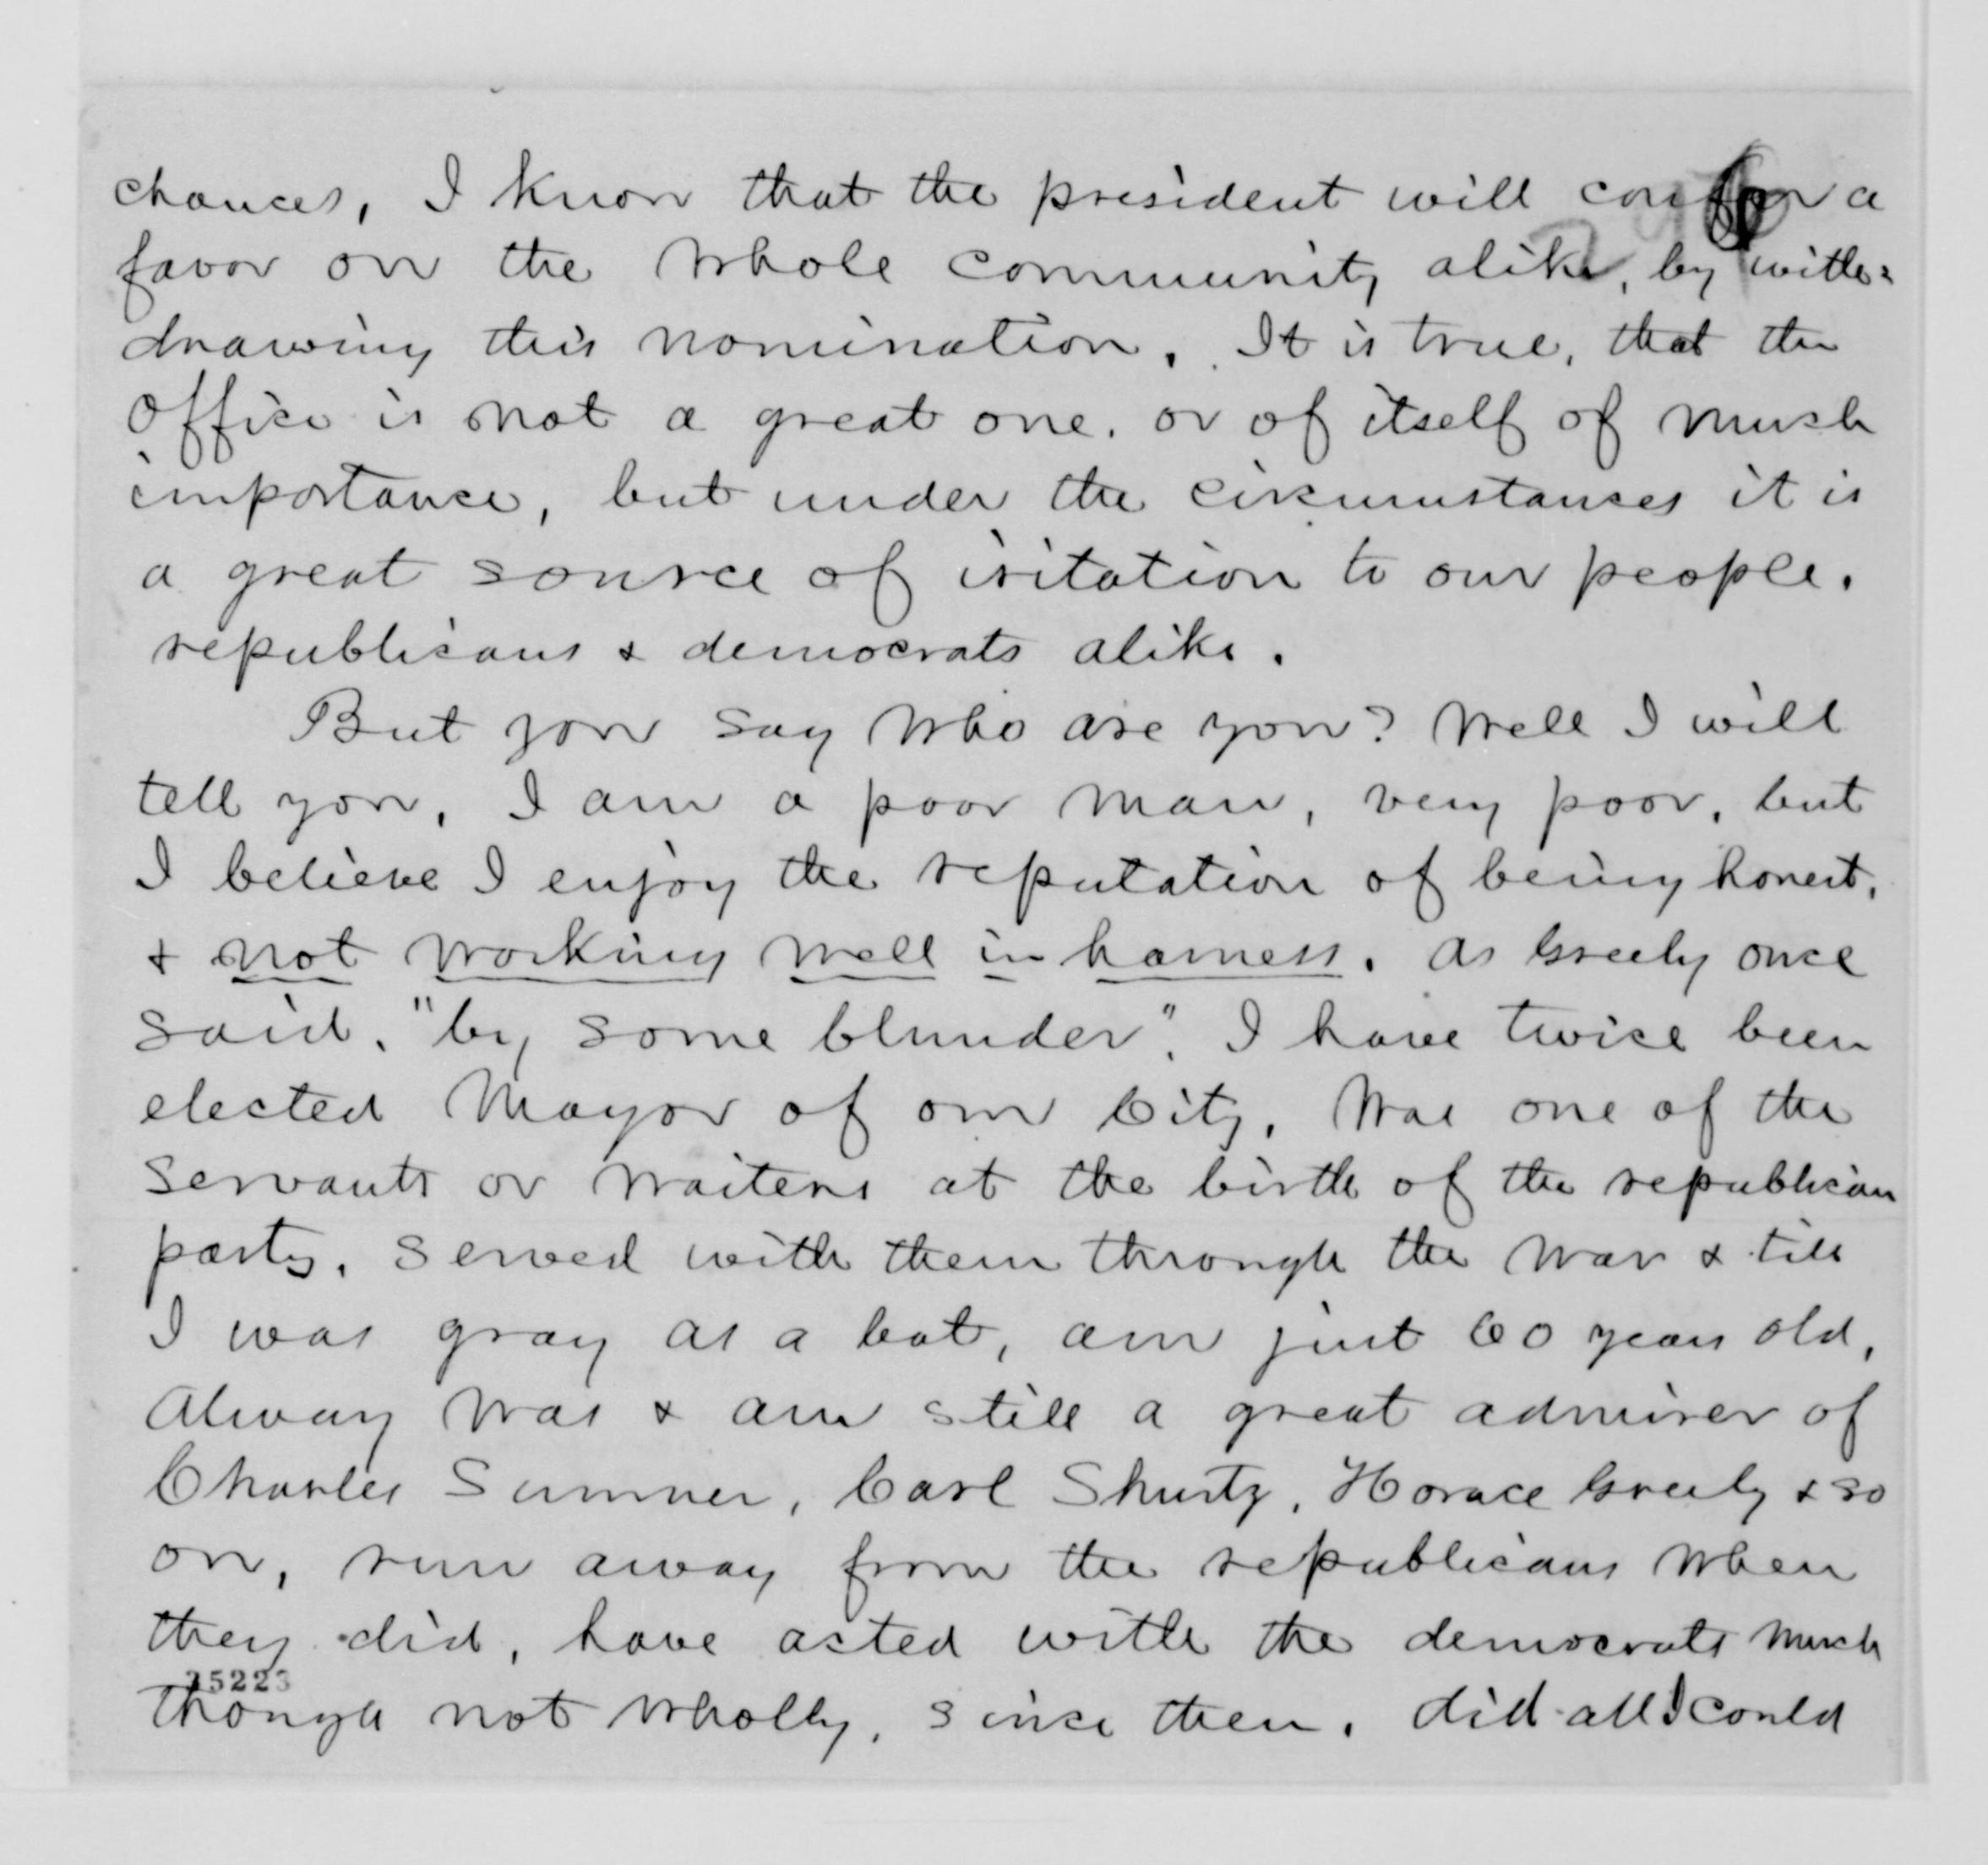 chances, I know that the president will confer a
favor on the whole community alike, by with=
drawing this nomination. It is true, that the
office is not a great one. or of itself of much
importance, but under the circumstances it is
a great source of iritation to our people.
republicans & democrats alike.
But you say who are you? Well I will
tell you, I am a poor man, very poor, but
I believe I enjoy the reputation of being honest,
& not working well in harness. As Greely once
said, "by some blunder". I have twice been
elected Mayor of our City, Was one of the
servants or waiters at the birth of the republican
party. Served with them through the war & till
I was gray as a bat, am just 60 years old,
Alway was & am still a great admirer of
Charles Sumner, Carl Shurtz, Horace Greely & so
on, run away from the republicans when
they did, have acted with the democrats much
25223
though not wholly, since then. did all I could